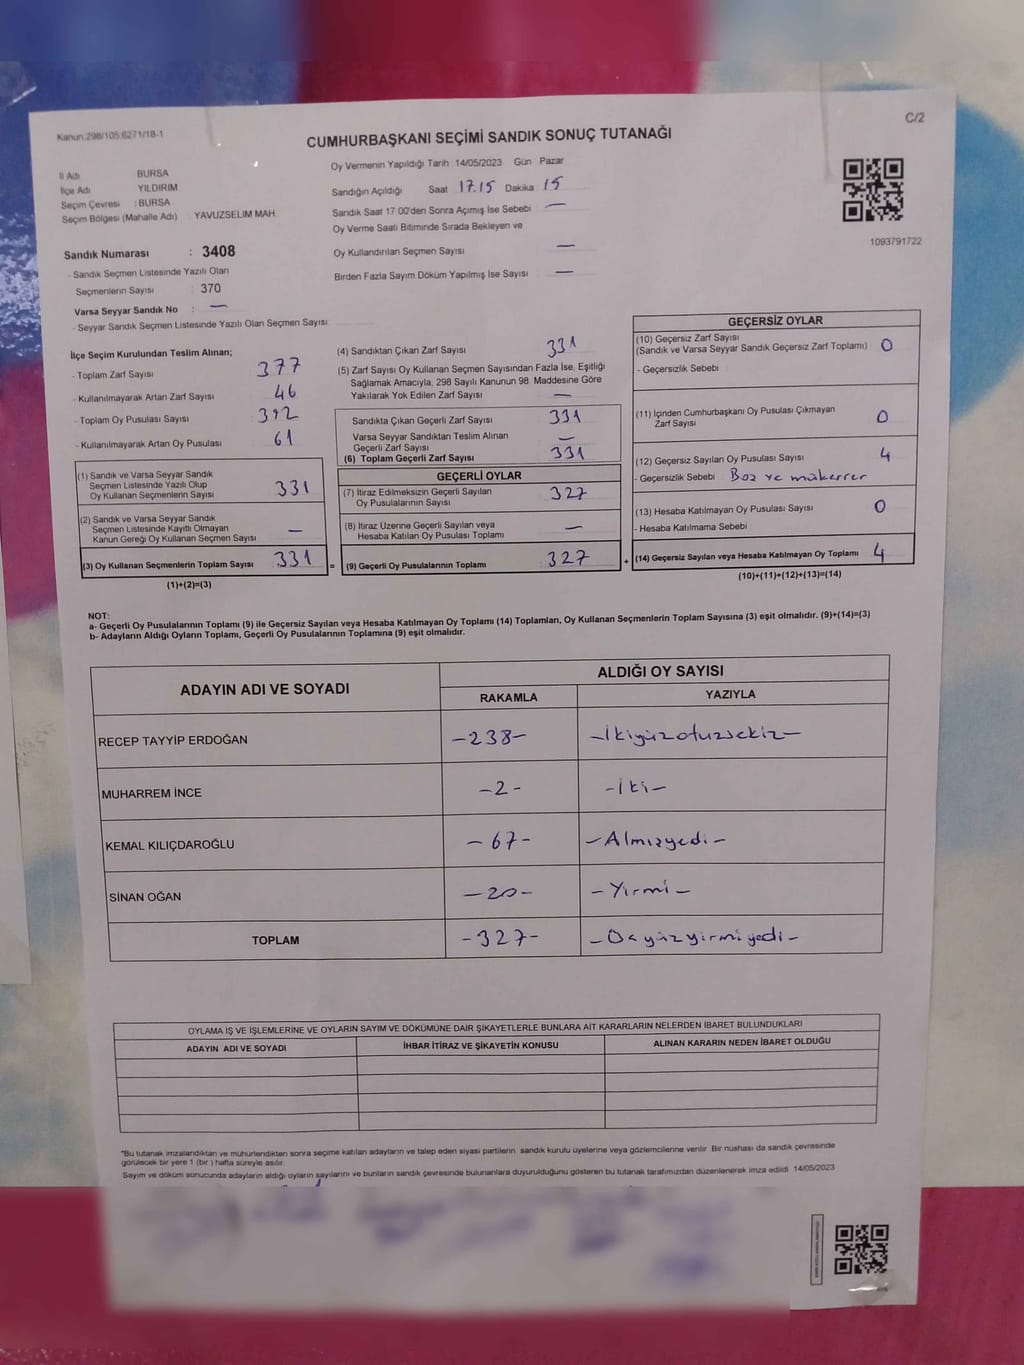 Kanun:298/105;6271/18-1
C/2
CUMHURBAŞKANI SEÇİMİ SANDIK SONUÇ TUTANAĞI
İl Adı BURSA
İlçe Adı YILDIRIM
Seçim Çevresi : BURSA
Seçim Bölgesi (Mahalle Adı) YAVUZSELIM MAH.
Oy Vermenin Yapıldığı Tarih 14/05/2023 Gün Pazar
Sandığın Açıldığı Saat 17.15 Dakika 15
Sandık Saat 17:00'den Sonra Açımış İse Sebebi —
Oy Verme Saati Bitiminde Sırada Bekleyen ve
Oy Kullandırılan Seçmen Sayısı —
Birden Fazla Sayım Döküm Yapılmış İse Sayısı —
1093791722
Sandık Numarası : 3408
- Sandık Seçmen Listesinde Yazılı Olan
Seçmenlerin Sayısı 370
Varsa Seyyar Sandık No : —
- Seyyar Sandık Seçmen Listesinde Yazılı Olan Seçmen Sayısı
İlçe Seçim Kurulundan Teslim Alınan;
- Toplam Zarf Sayısı 377
- Kullanılmayarak Artan Zarf Sayısı 46
- Toplam Oy Pusulası Sayısı 392
- Kullanılmayarak Artan Oy Pusulası 61
(1) Sandık ve Varsa Seyyar Sandık
Seçmen Listesinde Yazılı Olup
Oy Kullanan Seçmenlerin Sayısı 331
(2) Sandık ve Varsa Seyyar Sandık
Seçmen Listesinde Kayıtlı Olmayan
Kanun Gereği Oy Kullanan Seçmen Sayısı —
(3) Oy Kullanan Seçmenlerin Toplam Sayısı 331
(1)+(2)=(3)
(4) Sandıktan Çıkan Zarf Sayısı 331
(5) Zarf Sayısı Oy Kullanan Seçmen Sayısından Fazla İse, Eşitliği
Sağlamak Amacıyla, 298 Sayılı Kanunun 98. Maddesine Göre
Yakılarak Yok Edilen Zarf Sayısı —
Sandıkta Çıkan Geçerli Zarf Sayısı 331
Varsa Seyyar Sandıktan Teslim Alınan
Geçerli Zarf Sayısı —
(6) Toplam Geçerli Zarf Sayısı 331
GEÇERLİ OYLAR
(7) İtiraz Edilmeksizin Geçerli Sayılan
Oy Pusulalarının Sayısı 327
(8) İtiraz Üzerine Geçerli Sayılan veya
Hesaba Katılan Oy Pusulası Toplamı —
= (9) Geçerli Oy Pusulalarının Toplamı 327 +
GEÇERSİZ OYLAR
(10) Geçersiz Zarf Sayısı
(Sandık ve Varsa Seyyar Sandık Geçersiz Zarf Toplamı) 0
- Geçersizlik Sebebi
(11) İçinden Cumhurbaşkanı Oy Pusulası Çıkmayan
Zarf Sayısı 0
(12) Geçersiz Sayılan Oy Pusulası Sayısı 4
- Geçersizlik Sebebi Boş ve mükerrer
(13) Hesaba Katılmayan Oy Pusulası Sayısı 0
- Hesaba Katılmama Sebebi
(14) Geçersiz Sayılan veya Hesaba Katılmayan Oy Toplamı 4
(10)+(11)+(12)+(13)=(14)
NOT:
a- Geçerli Oy Pusulalarının Toplamı (9) ile Geçersiz Sayılan veya Hesaba Katılmayan Oy Toplamı (14) Toplamları, Oy Kullanan Seçmenlerin Toplam Sayısına (3) eşit olmalıdır. (9)+(14)=(3)
b- Adayların Aldığı Oyların Toplamı, Geçerli Oy Pusulalarının Toplamına (9) eşit olmalıdır.
ADAYIN ADI VE SOYADI
ALDIĞI OY SAYISI
RAKAMLA YAZIYLA
RECEP TAYYİP ERDOĞAN -238- -İkiyüzotuzsekiz-
MUHARREM İNCE -2- -İki-
KEMAL KILIÇDAROĞLU -67- -Altmışyedi-
SİNAN OĞAN -20- -Yirmi-
TOPLAM -327- -Üçyüzyirmiyedi-
OYLAMA İŞ VE İŞLEMLERİNE VE OYLARIN SAYIM VE DÖKÜMÜNE DAİR ŞİKAYETLERLE BUNLARA AİT KARARLARIN NELERDEN İBARET BULUNDUKLARI
ADAYIN ADI VE SOYADI İHBAR İTİRAZ VE ŞİKAYETİN KONUSU ALINAN KARARIN NEDEN İBARET OLDUĞU
*Bu tutanak imzalandıktan ve mühürlendikten sonra seçime katılan adayların ve talep eden siyasi partilerin sandık kurulu üyelerine veya gözlemcilerine verilir. Bir nüshası da sandık çevresinde
görülecek bir yere 1 (bir) hafta süreyle asılır.
Sayım ve döküm sonucunda adayların aldığı oyların sayılarını ve bunların sandık çevresinde bulunanlara duyurulduğunu gösteren bu tutanak tarafımızdan düzenlenerek imza edildi. 14/05/2023